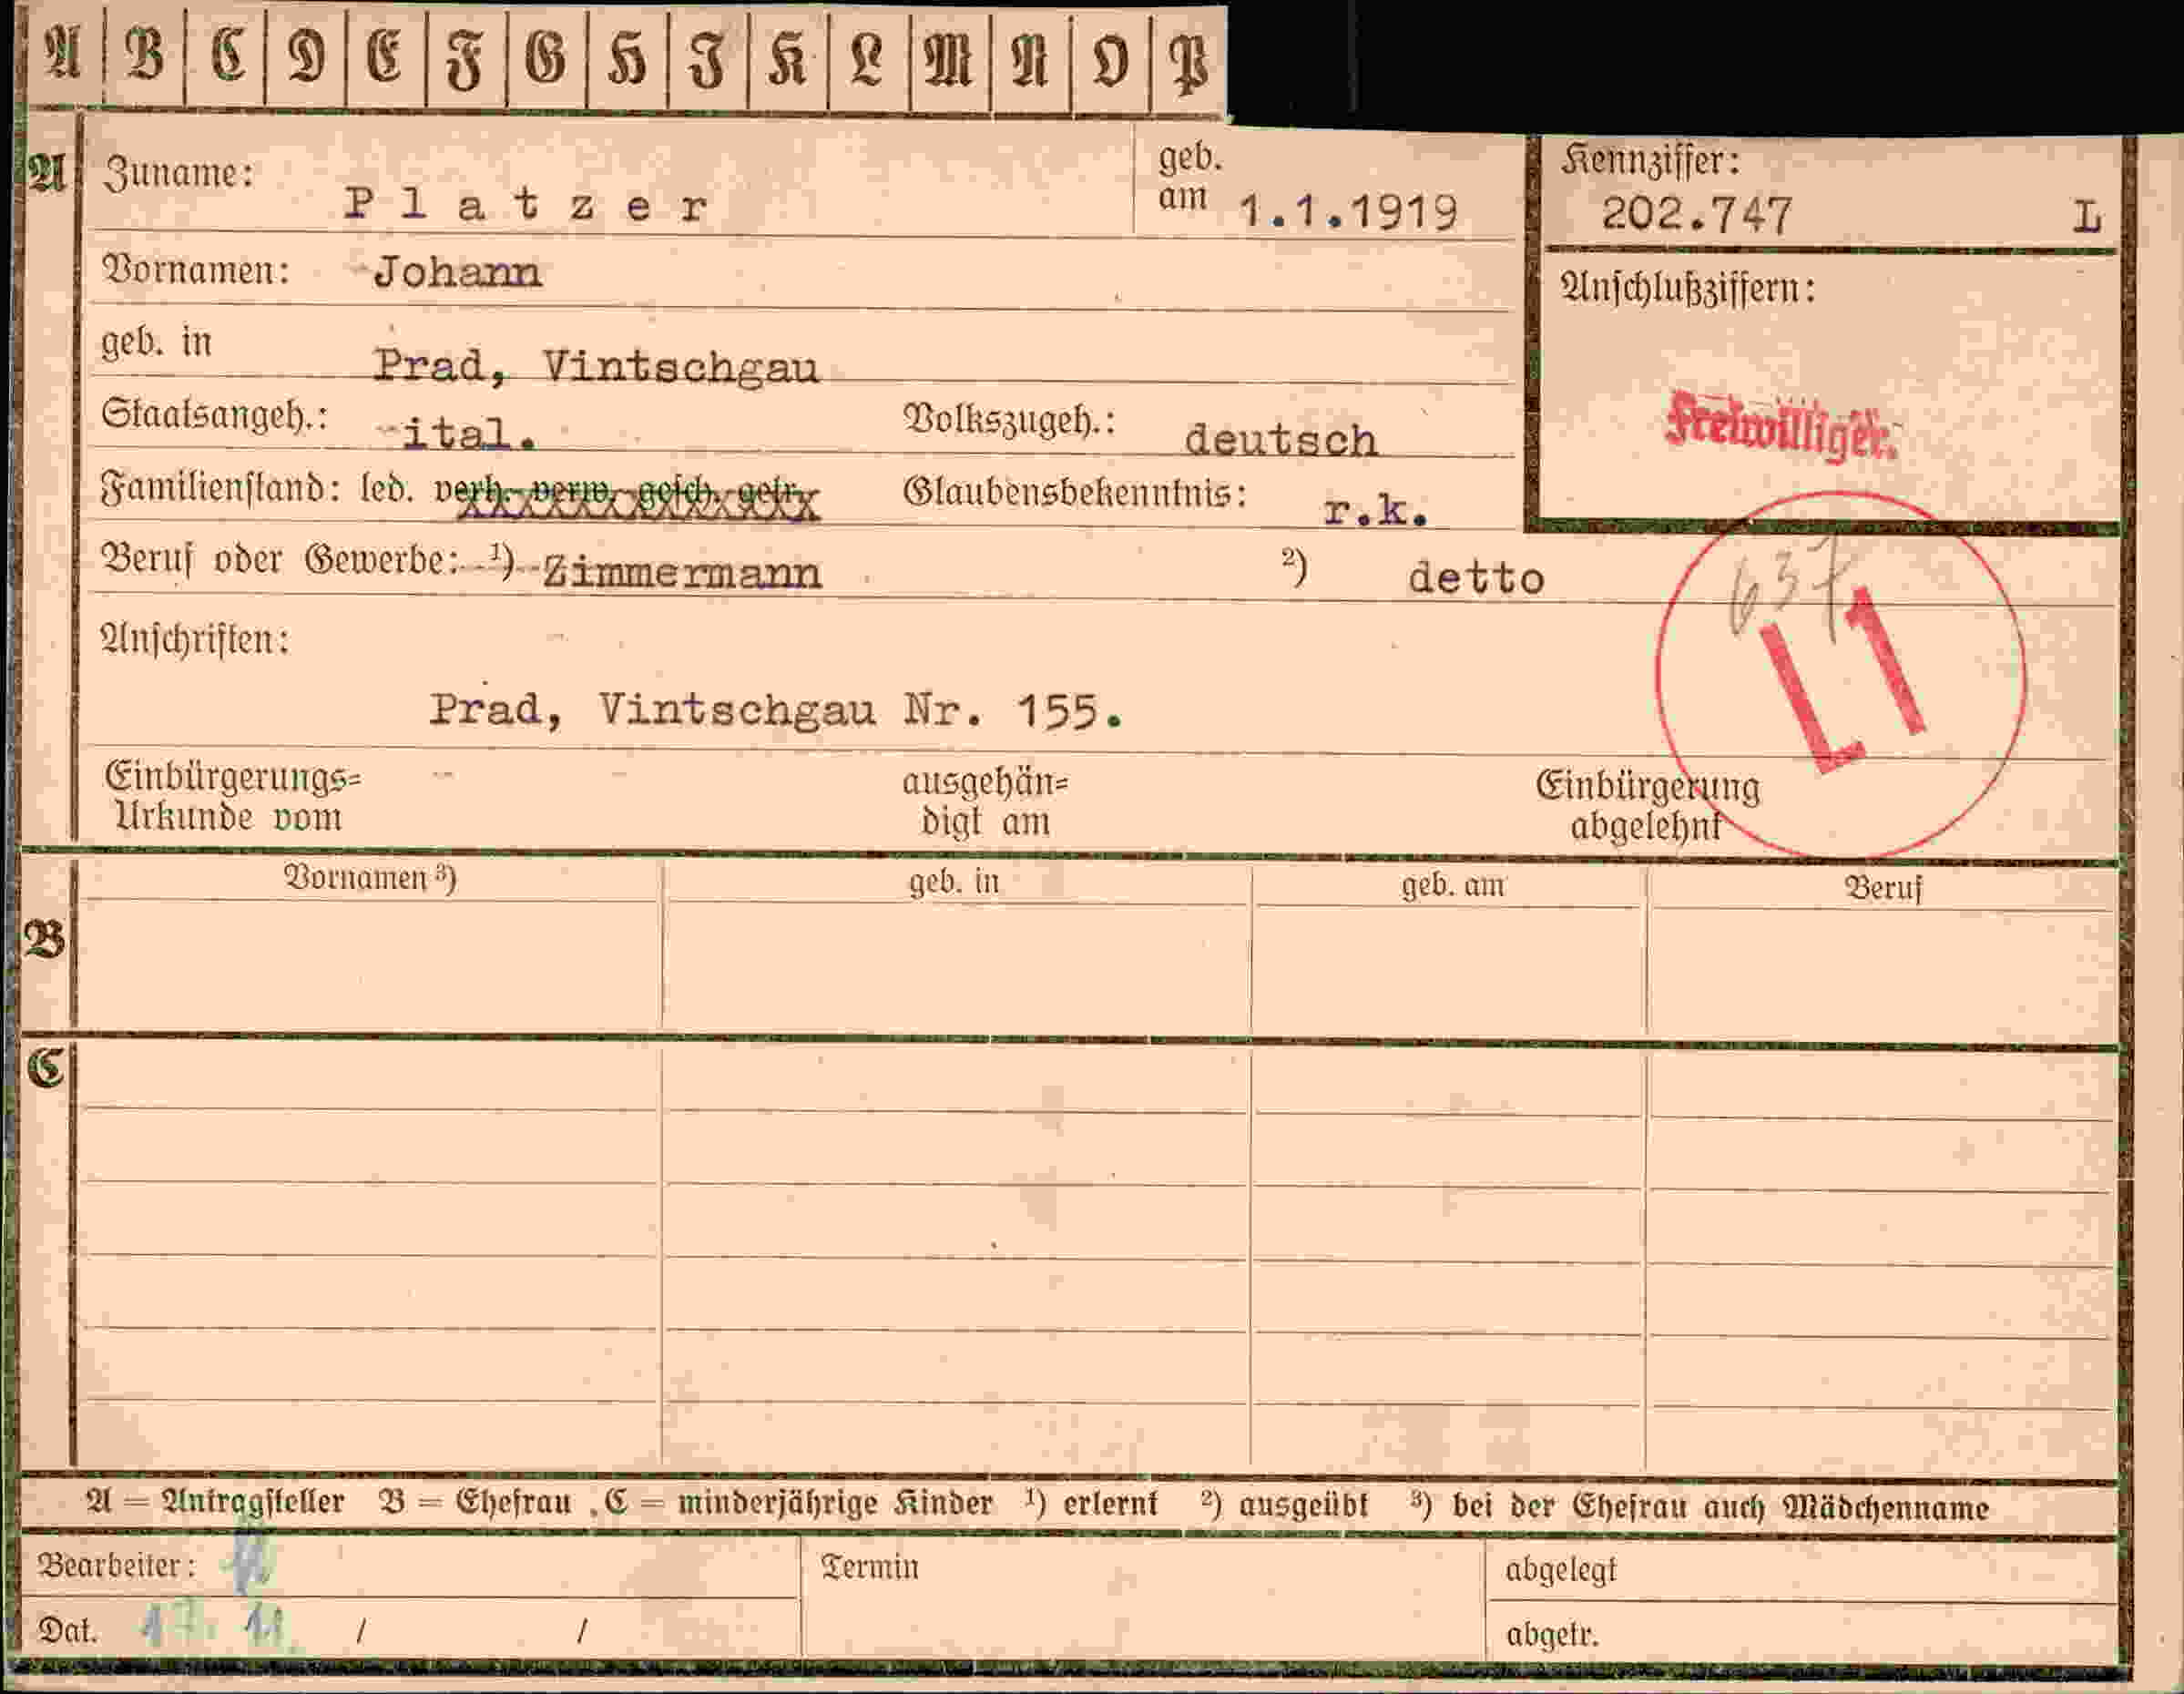 A B C D E F G H I K L M N O P
A Zuname: Platzer geb. am 1.1.1919 Kennziffer: 202.747 L
Vornamen: Johann Anschlußziffern:
geb. in Prad, Vintschgau
Staatsangeh.: ital. Volkszugeh.: deutsch Freiwilliger.
Familienstand: led. verh. verw. gesch. getr. Glaubensbekenntnis: r.k.
Beruf oder Gewerbe: ¹) Zimmermann ²) detto 637
L1
Anschriften:
Prad, Vintschgau Nr. 155.
Einbürgerungs= ausgehän= Einbürgerung
Urkunde vom digt am abgelehnt
Vornamen ³) geb. in geb. am Beruf
B
C
A = Antragsteller B = Ehefrau C = minderjährige Kinder ¹) erlernt ²) ausgeübt ³) bei der Ehefrau auch Mädchenname
Bearbeiter: Termin abgelegt
Dat. 17. 11 / / abgetr.